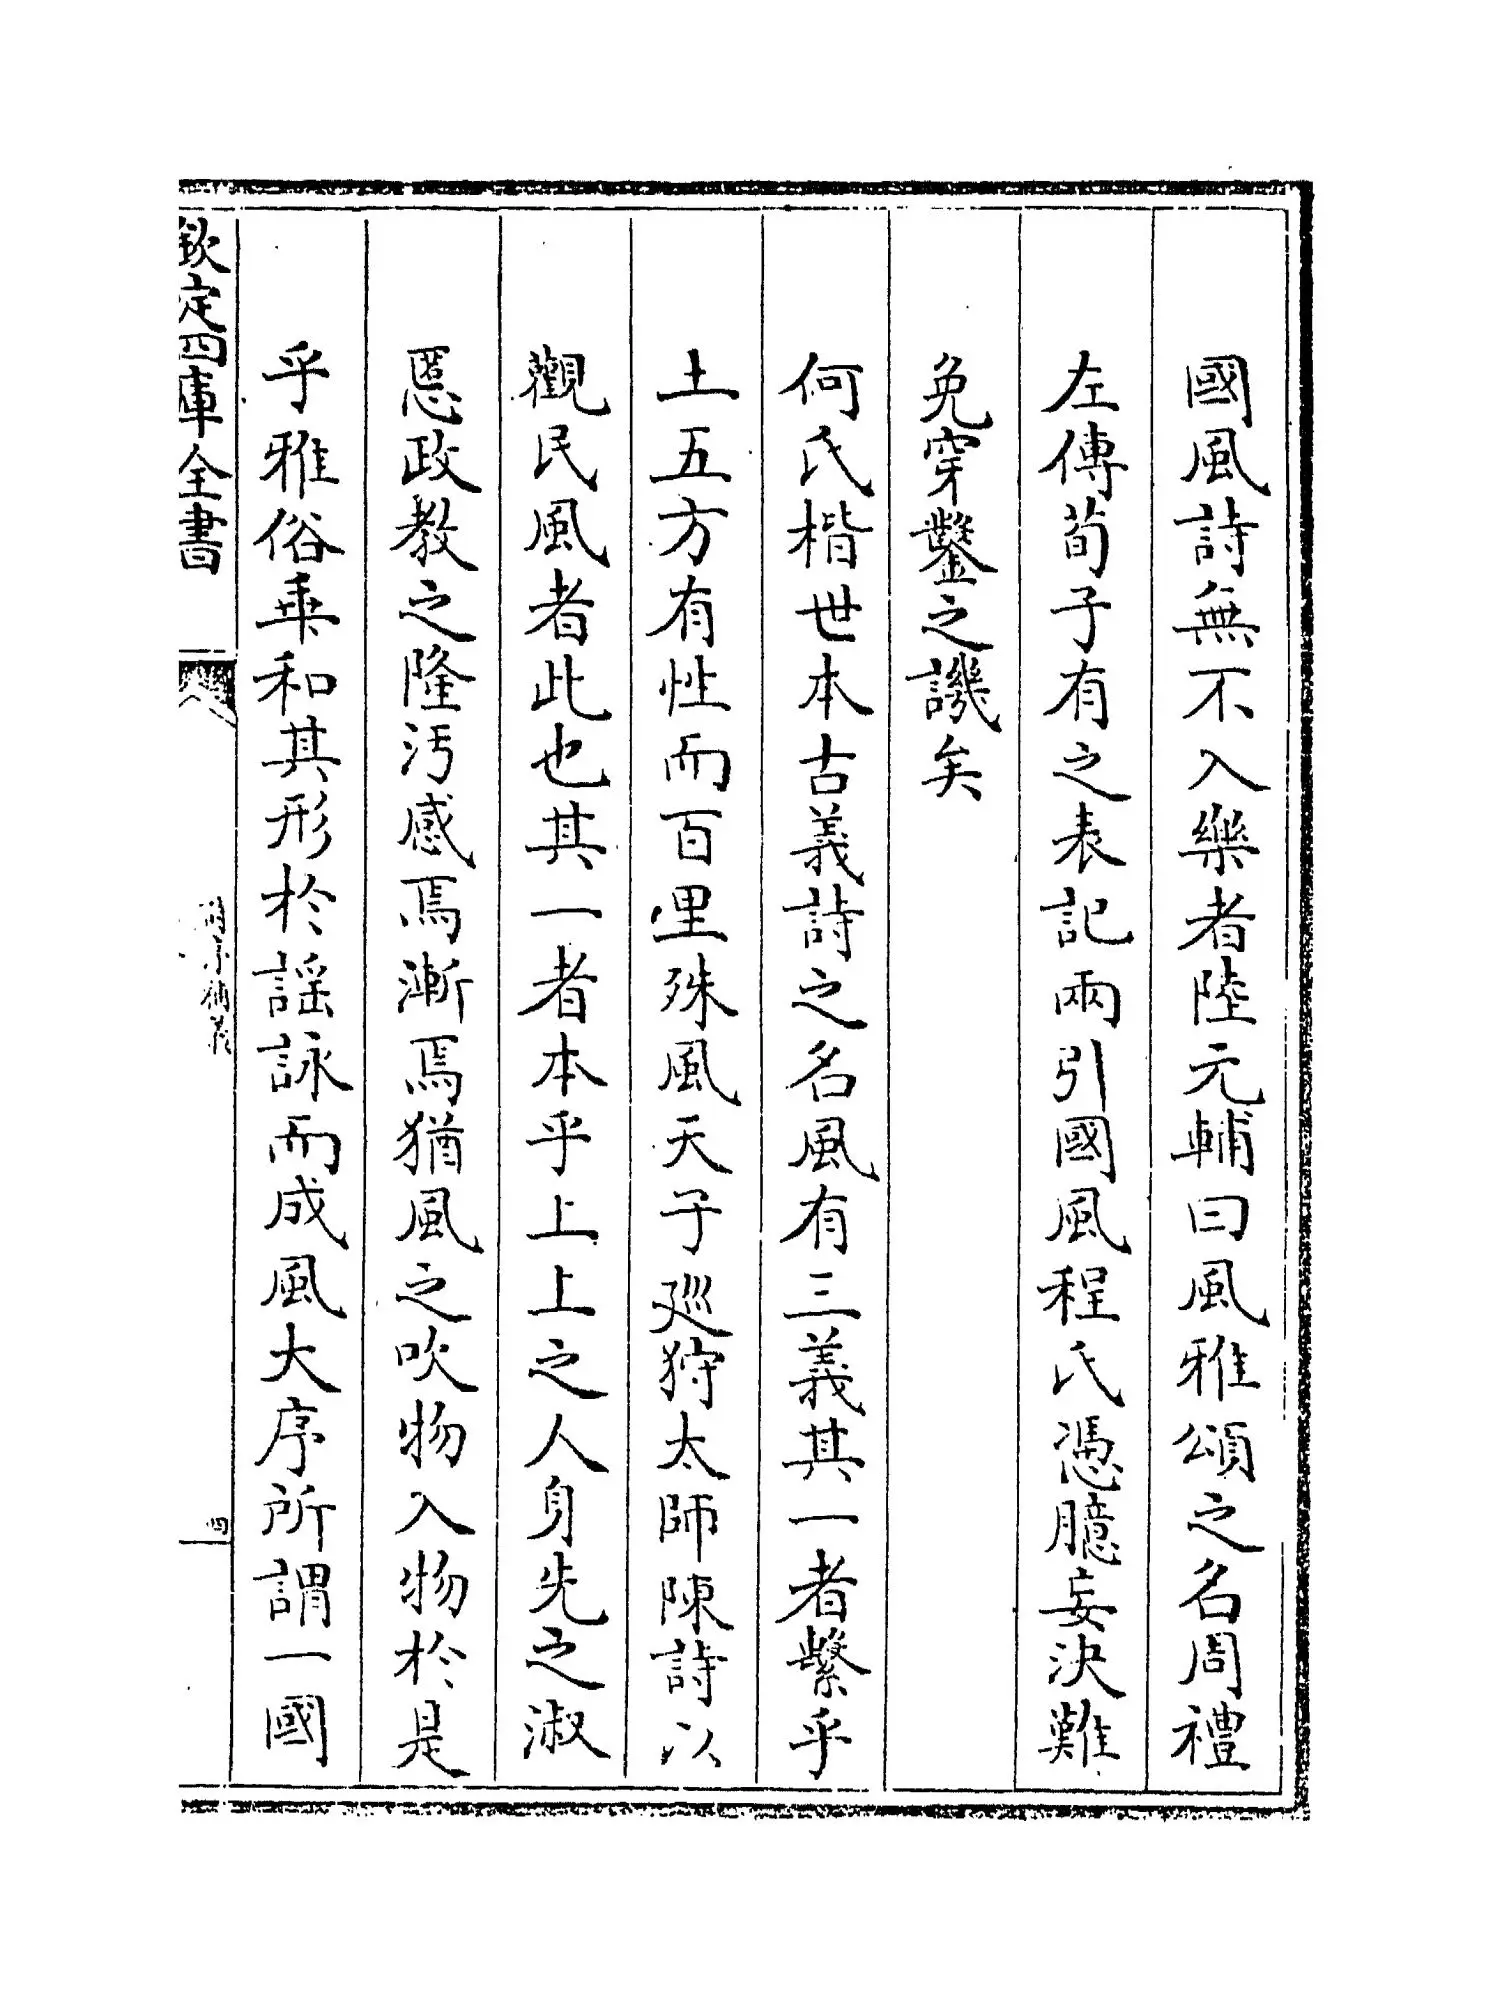 國風詩無不入樂者陸元輔曰風雅頌之名周禮
左傳荀子有之表記兩引國風程氏憑臆妄決難
免穿鑿之譏矣
何氏楷世本古義詩之名風有三義其一者繫乎
土五方有性而百里殊風天子廵狩太師陳詩以
觀民風者此也其一者本乎上上之人身先之淑
慝政教之隆汚感焉漸焉猶風之吹物入物於是
乎雅俗乖和其形於謡詠而成風大序所謂一國
欽定四庫全書
四